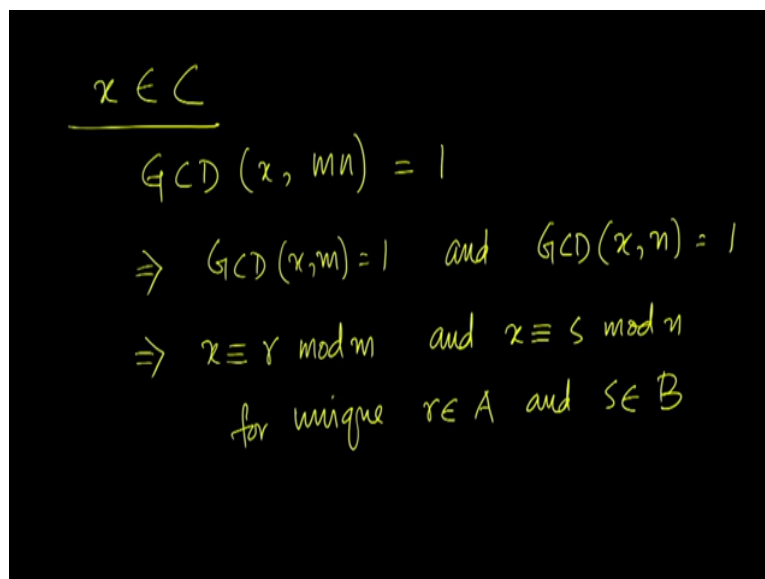 x ∈ C
GCD (x, mn) = 1
⇒ GCD (x,m) = 1 and GCD (x, n) = 1
⇒ x ≡ r mod m and x ≡ s mod n
for unique r ∈ A and s ∈ B